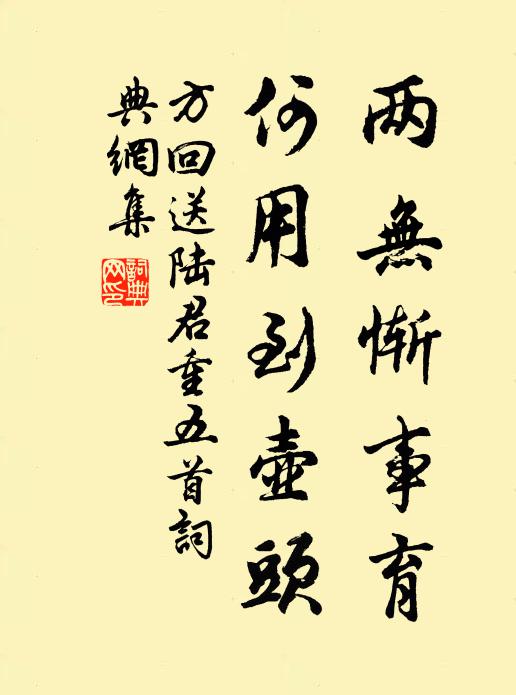 两無慚事育
何用到壺頭
方回送陆君重五首詞
典網集
詞典
网印